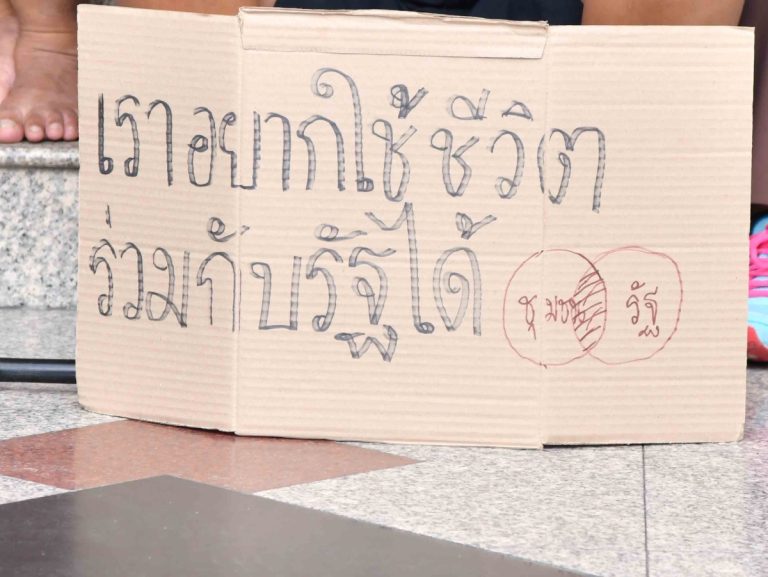 เราอยากใช้ชีวิต
ร่วมกับรัฐได้
ชุมชน รัฐ